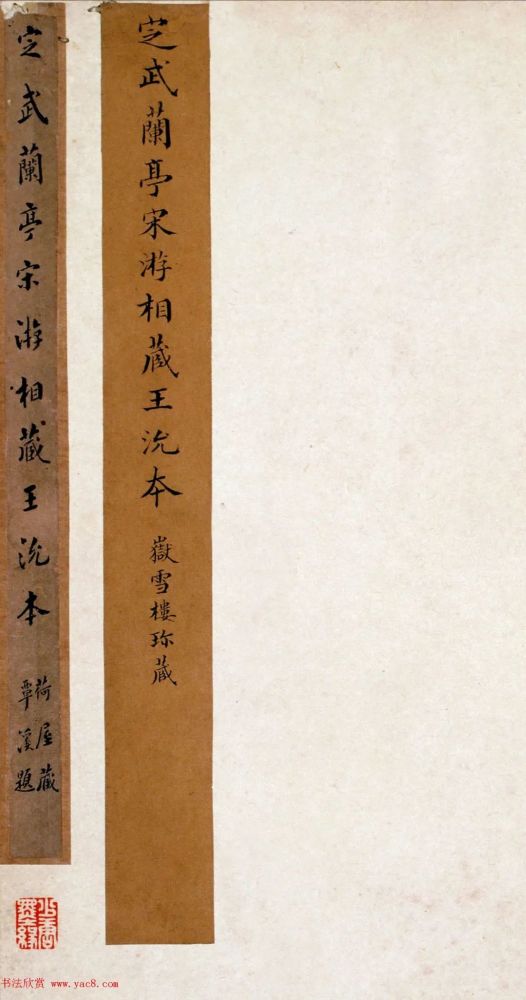 㝎武蘭亭宋游相藏王沇本
嶽雪樓珎藏
㝎武蘭亭宋游相藏王沇本
荷屋藏
覃溪題
少唐
墨緣
书法欣赏 www.yac8.com